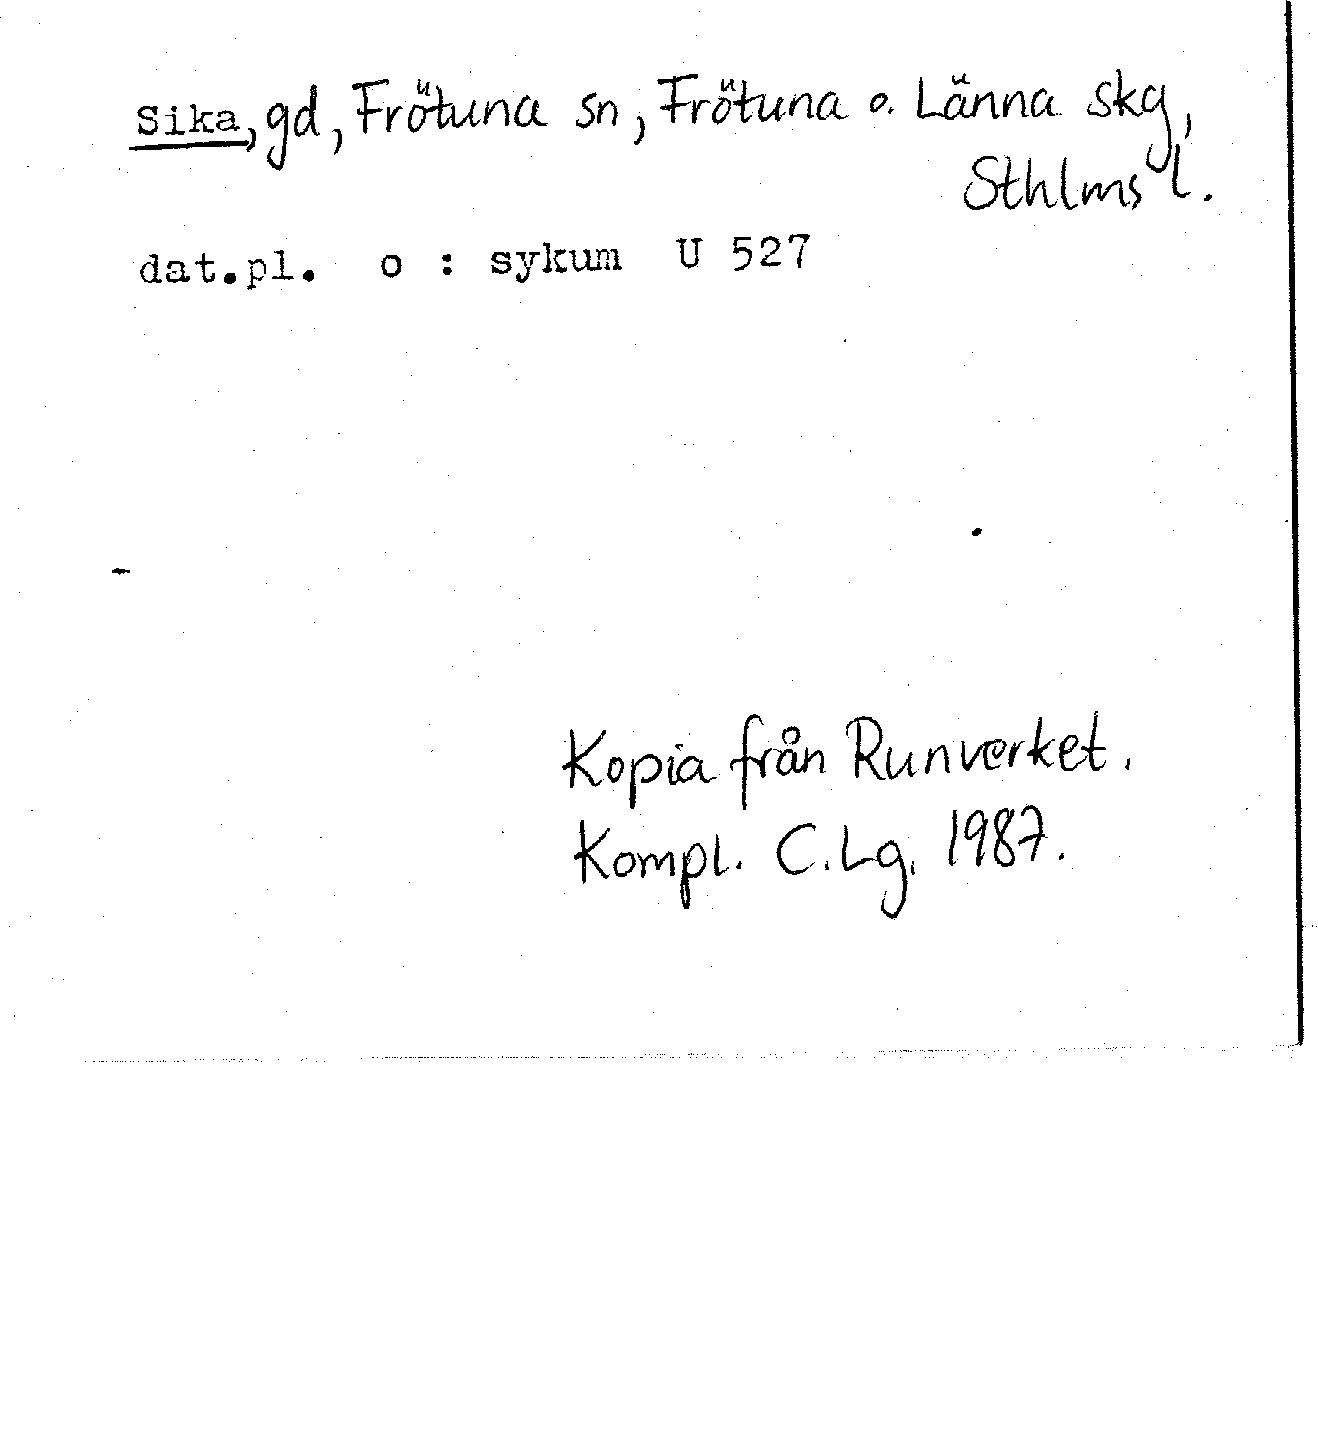 Sika, gd, Frötuna sn, Frötuna o. Länna skg,
Sthlms l.
dat.pl. o : sykum U 527
Kopia från Runverket.
Kompl. C.Lg. 1987.